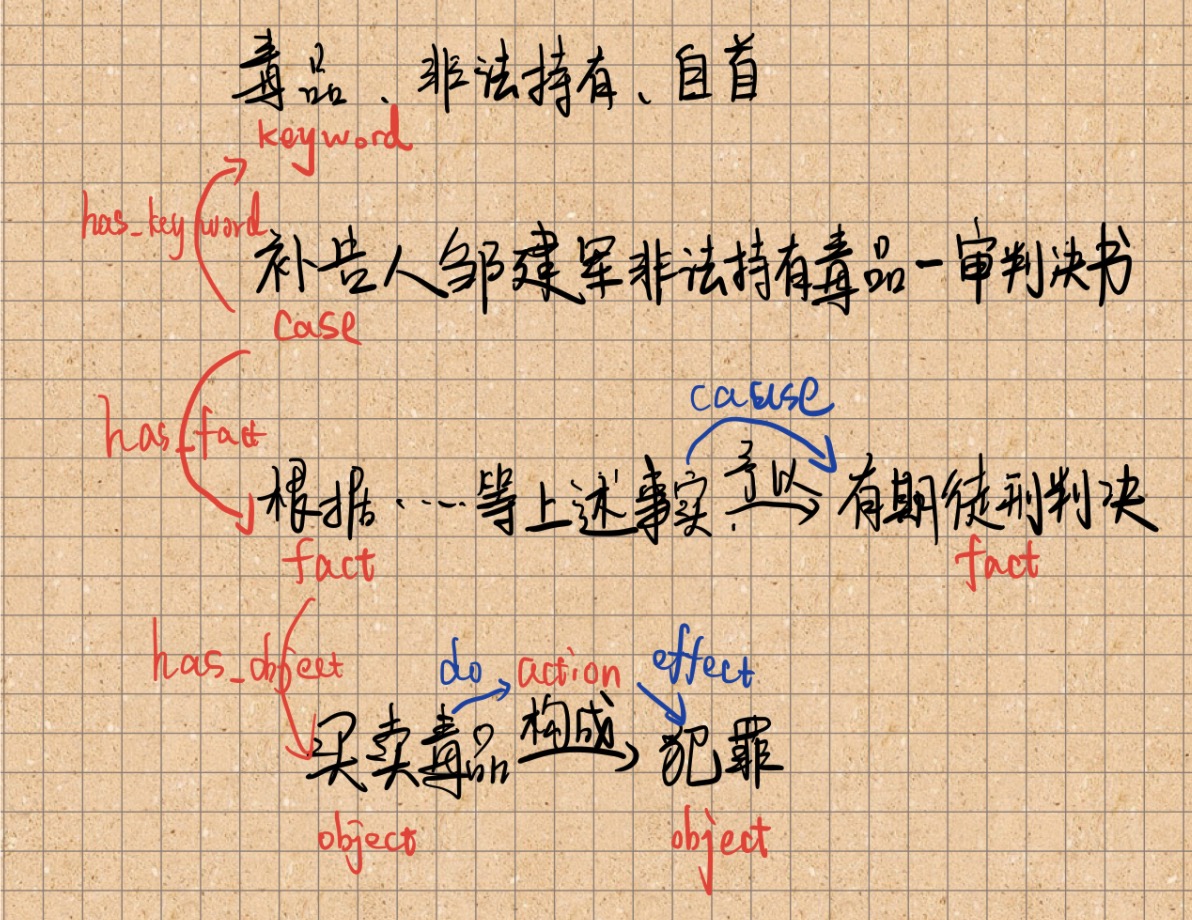 毒品、非法持有、自首
keyword
has_keyword
补告人邹建军非法持有毒品一审判决书
case
cause
has_fact
根据……等上述事实 予以 有期徒刑判决
fact fact
has_object do action effect
买卖毒品 构成 犯罪
object object